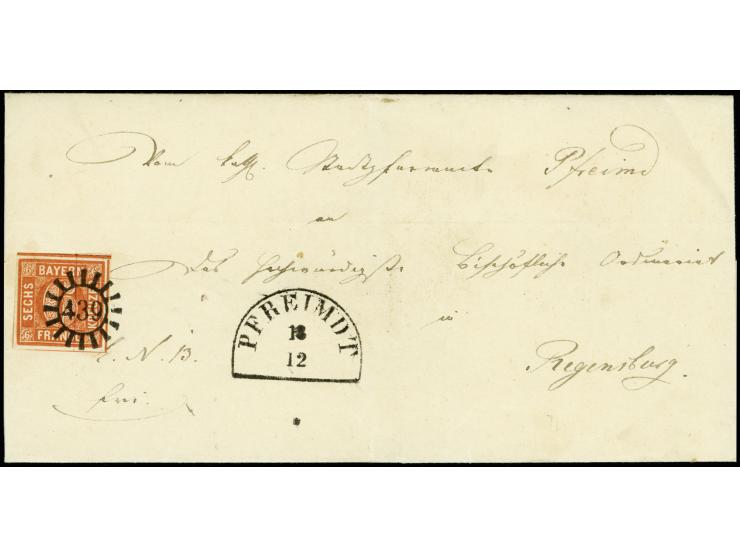 Vom kath. Stadtpfarramte Pfreimd
an
Das Hochwürdigste Bischöfliche Ordinariat
in
Regensburg.
E. N. 13.
frei.
BAYERN
SECHS
FRANCO
6
439
PFREIMDT
18
12